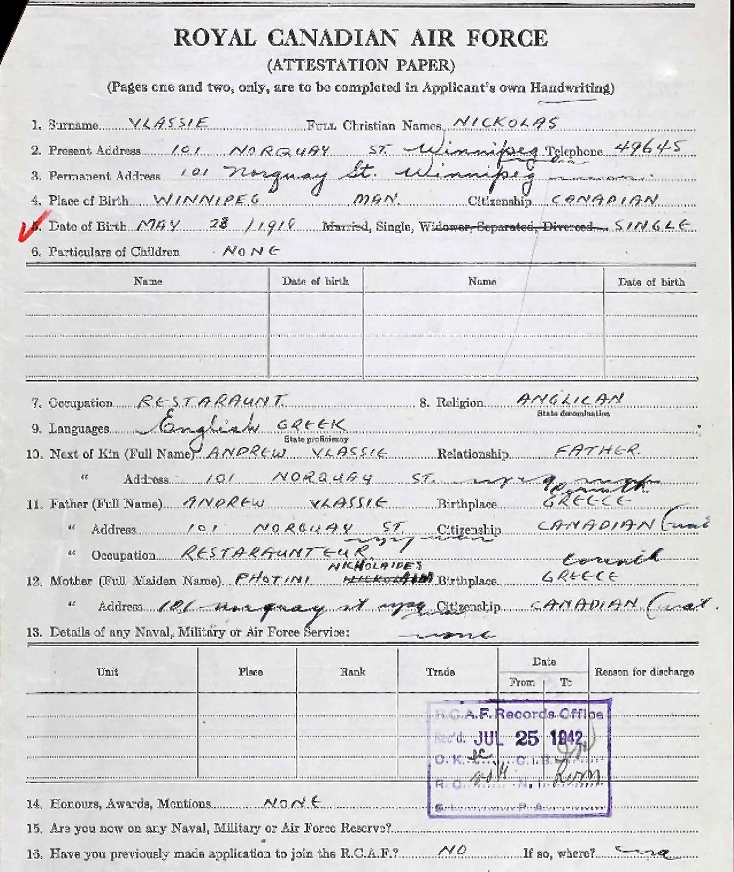 ROYAL CANADIAN AIR FORCE
(ATTESTATION PAPER)
(Pages one and two, only, are to be completed in Applicant's own Handwriting)
1. Surname VLASSIE Full Christian Names NICKOLAS
2. Present Address 101 NORQUAY ST. Winnipeg Telephone 49645
3. Permanent Address 101 Norquay St. Winnipeg
4. Place of Birth WINNIPEG MAN. Citizenship CANADIAN
5. Date of Birth MAY 28 /1918 Married, Single, Widower, Separated, Divorced SINGLE
6. Particulars of Children NONE
Name Date of birth Name Date of birth
7. Occupation RESTARAUNT 8. Religion ANGLICAN
State denomination
9. Languages English GREEK
State proficiency
10. Next of Kin (Full Name) ANDREW VLASSIE Relationship FATHER
" Address 101 NORQUAY ST.
11. Father (Full Name) ANDREW VLASSIE Birthplace GREECE
" Address 101 NORQUAY ST. Citizenship CANADIAN
" Occupation RESTARAUNTEUR
NICHOLAIDES
12. Mother (Full Maiden Name) PHOTINI Birthplace GREECE
" Address 101 norquay st wpg Citizenship CANADIAN (nat.
13. Details of any Naval, Military or Air Force Service: none
Unit Place Rank Trade Date Reason for discharge
From To
R.C.A.F. Records Office
Rec'd. JUL 25 1942
O.K.
14. Honours, Awards, Mentions NONE
15. Are you now on any Naval, Military or Air Force Reserve?
16. Have you previously made application to join the R.C.A.F.? NO If so, where?